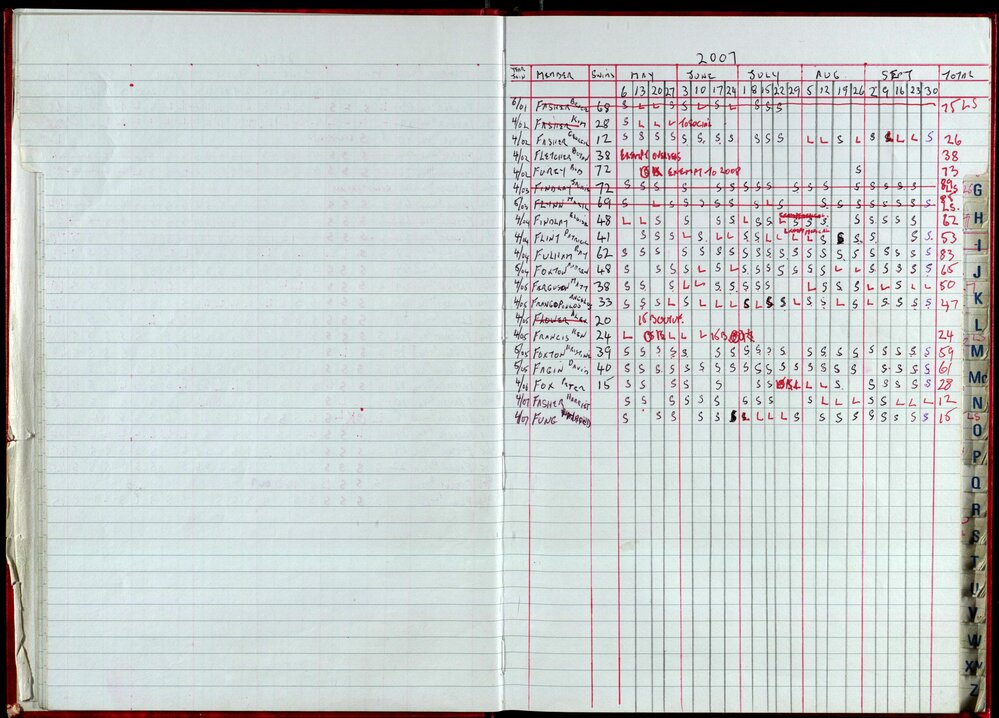 2007
YEAR JOIN MEMBER SWIMS MAY JUNE JULY AUG SEPT TOTAL
6 13 20 27 3 10 17 24 1 8 15 22 29 5 12 19 26 2 9 16 23 30
6/01 FASHER 68 S L L S S L S L S S S 75 LS
4/02 FASHER KIM 28 S L L L TO SOCIAL
4/02 FASHER 12 S S S S S S S S S S S L L S L S L L L S 26
4/02 FLETCHER 38 EXEMPT OVERSEAS 38
4/02 FUREY ROD 72 EXEMPT TO 2008 S 73
4/03 FINDLAY 72 S S S S S S S S S S S S S S S S S S S
5/03 FLYNN 69 S L S S S S S S L S S S S S S S S S S
4/04 FINDLAY 48 L L S S S S L S S L S S S S S S S 62
4/04 FLINT PATRICIA 41 S S S L L S L S S L L L L S S S S S S 53
4/04 FULHAM RAY 62 S S S S S S S S S S S S S S S S S S S S S 83
5/04 FOXTON 48 S S S S L S L S S S S S S L L S S S S S 65
5/05 FERGUSON MATT 38 S S S L L S S S S S L S S L L S L L 50
4/05 FRANGOPOULOS 33 S S S L S L L L S L S S L S S L S L S S S S 47
4/05 FLOWER ALEX 20 15 BOWOUT
4/05 FRANCIS KEN 24 L L L L L 24
5/05 FOXTON 39 S S S S S S S S S S S S S S S S S S S S 59
5/05 FAGIN DAVID 40 S S S S S S S S S S S S S S S S S S S S S 61
4/06 FOX PETER 15 S S S S S S S L L L S S S S S S 28
4/07 FASHER HARRIET S S S S S S S S S L L L L S L L L L 12
4/07 FUNG S S S S S S L L L L L S S S S S S S S S S 15
G
H
I
J
K
L
M
Mc
N
O
P
Q
R
S
T
U
V
W
Z